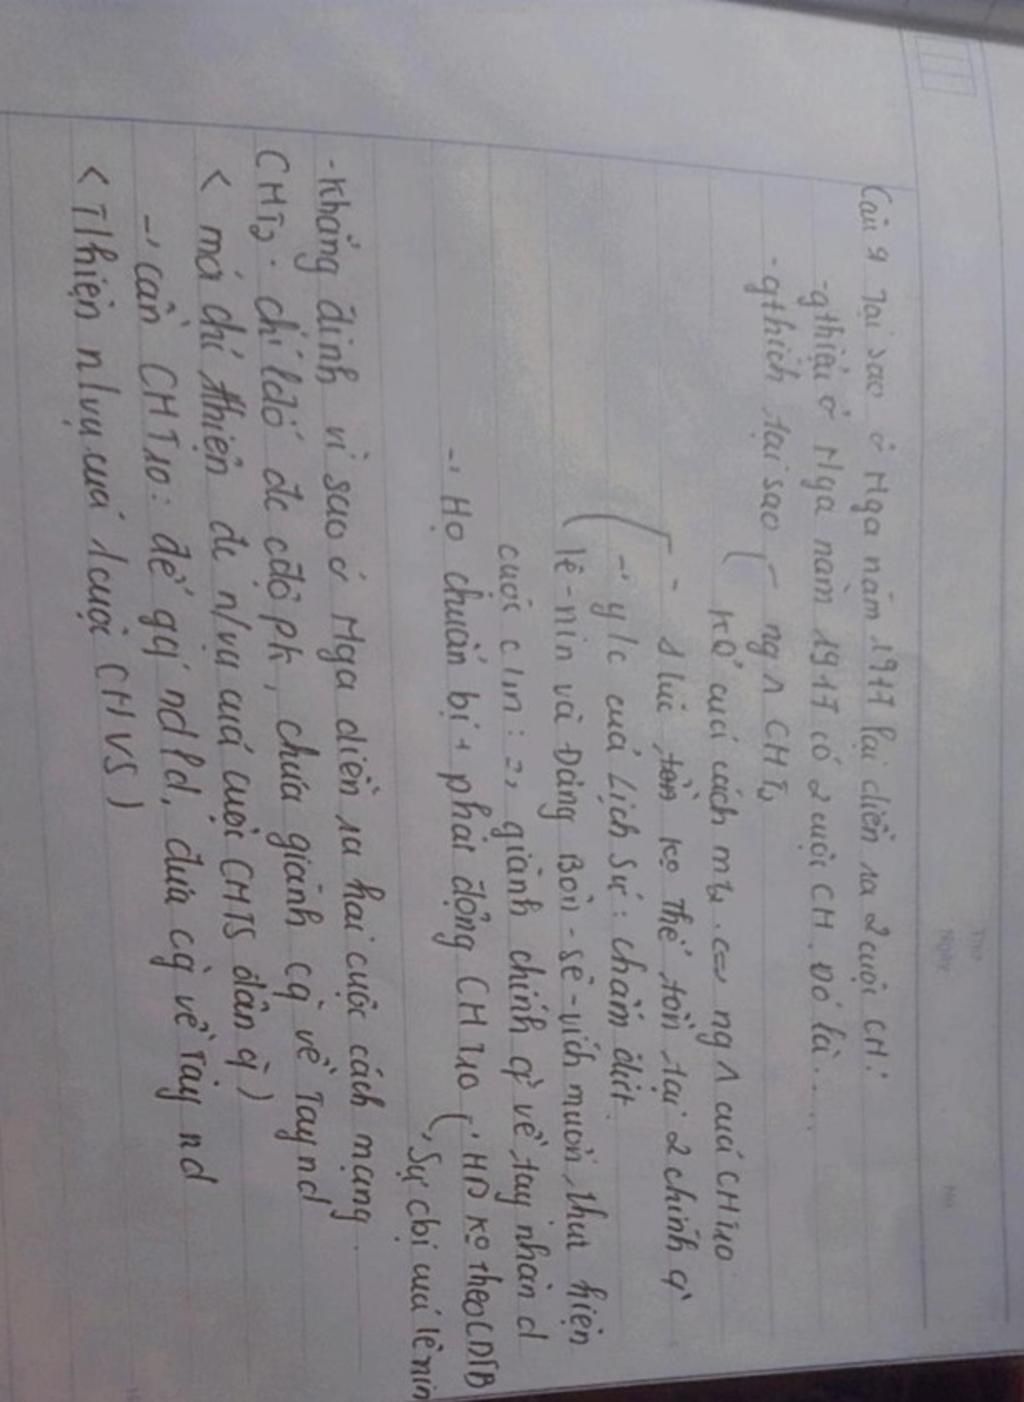 Câu 9 Tại sao ở Nga năm 1917 lại diễn ra 2 cuộc CH:
-gthiệu ở Nga năm 1917 có 2 cuộc CH. Đó là....
-gthích tại sao ( - ng^ CHT2
KQ của cách m t2. <=> ng^ của CHT10
- 1 lúc ko thể tồn tại 2 chính q`
-' y/c của Lịch sử: chấm dứt
lê-nin và Đảng Bôn-sê-vích muốn thực hiện
cuộc c/m: => giành chính q` về tay nhân d
-' Họ chuẩn bị + phát động CHT10 (' HĐ ko theo CĐTB
, Sự cbị của lênin
-Khẳng định vì sao ở Nga diễn ra hai cuộc cách mạng.
CHT2. chỉ lđổ đc cđộ pk, chưa giành cq` về Tay nd
< mới chỉ thiện đc n/vụ của cuộc CHTS dân q`)
-' cần CHT10: để gq' ndld, đưa cq` về Tay nd
< Thiện n/vụ của 1 cuộc CHVS)
Thứ
Ngày
No.